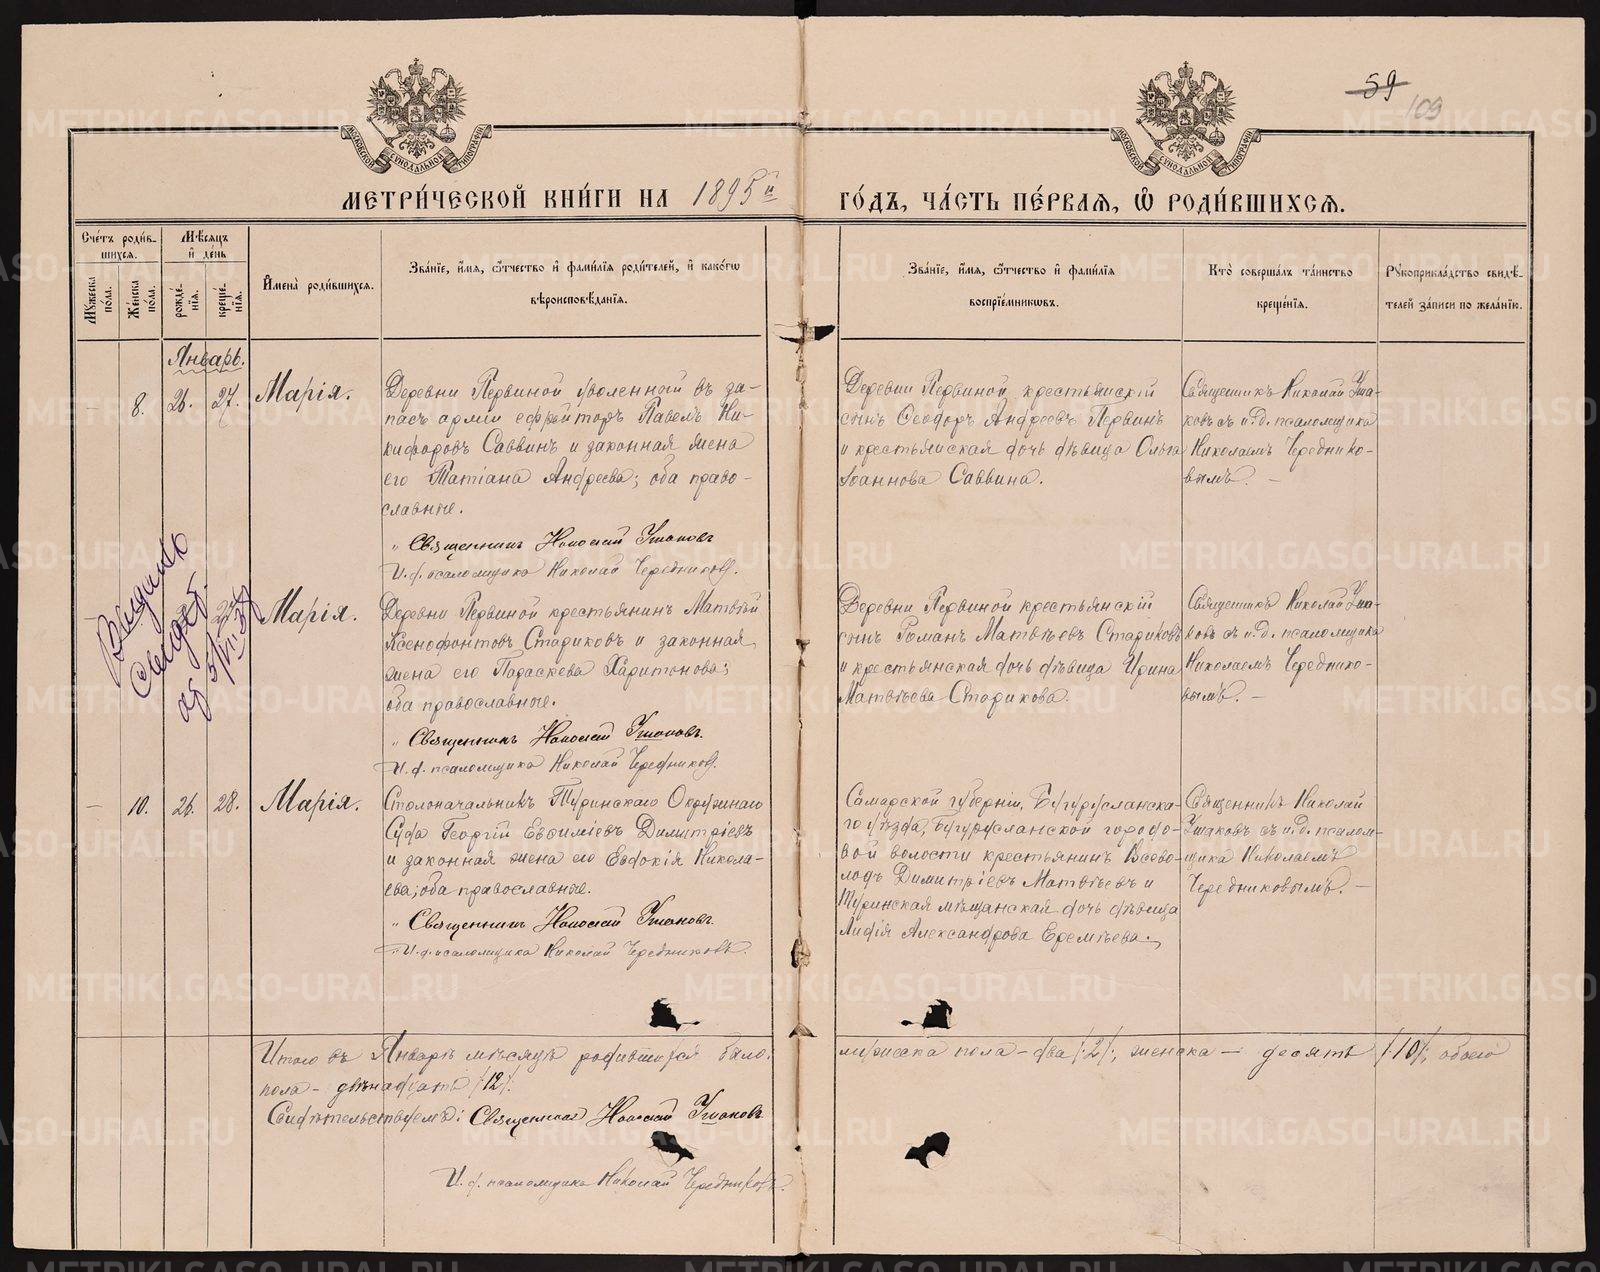 59
109
МЕТРИ́ЧЕСКОЙ КНИ́ГИ НА 1895й ГО́ДЪ, ЧА́СТЬ ПЕ́РВАЯ, Ѡ РОДИ́ВШИХСЯ.
Сче́тъ роди́в-
шихся.
Мѣ́сяцъ
и де́нь
Му́жеска по́ла.
Же́нска по́ла.
рожде́-
нїя.
креще́-
нїя.
Имена̀ роди́вшихся.
Зва́нїе, и́мя, ѻ́тчество и фами́лїя роди́телей, и како́гѡ
вѣроисповѣ́данїя.
Зва́нїе, и́мя, ѻ́тчество и фами́лїя
воспрїе́мникѡвъ.
Кто̀ соверша́лъ та́инство
креще́нїя.
Рꙋкоприкла́дство свидѣ́-
телей за́писи по жела́нїю.
Январь.
8.
26.
27.
Марія.
Деревни Первиной уволенный въ за-
пасъ арміи ефрейторъ Павелъ Ни-
кифоровъ Саввинъ и законная жена
его Татіана Андреева; оба право-
славные.
Священникъ Николай Ушаковъ
И. д. псаломщика Николай Чередниковъ.
Деревни Первиной крестьянскій
сынъ Ѳеодоръ Андреевъ Первинъ
и крестьянская дочь дѣвица Ольга
Іоаннова Саввина.
Священникъ Николай Уша-
ковъ съ и. д. псаломщика
Николаемъ Череднико-
вымъ. –
Выдано
свидет.
Марія.
Деревни Первиной крестьянинъ Матвѣй
Ксенофонтовъ Стариковъ и законная
жена его Параскева Харитонова;
оба православные.
Священникъ Николай Ушаковъ.
И. д. псаломщика Николай Чередниковъ.
Деревни Первиной крестьянскій
сынъ Романъ Матвѣевъ Стариковъ
и крестьянская дочь дѣвица Ирина
Матвѣева Старикова.
Священникъ Николай Уша-
ковъ съ и. д. псаломщика
Николаемъ Череднико-
вымъ. –
10.
26.
28.
Марія.
Столоначальникъ Туринскаго Окружнаго
Суда Георгій Евѳиміевъ Димитріевъ
и законная жена его Евдокія Никола-
ева; оба православные.
Священникъ Николай Ушаковъ.
И. д. псаломщика Николай Чередниковъ.
Самарской губерніи, Бугурусланска-
го уѣзда, Бугурусланской городо-
вой волости крестьянинъ Всево-
лодъ Димитріевъ Матвѣевъ и
Туринская мѣщанская дочь дѣвица
Лидія Александрова Еремѣева.
Священникъ Николай
Ушаковъ съ и. д. псалом-
щика Николаемъ
Чередниковымъ. –
Итого въ Январѣ мѣсяцѣ родившихся было: мужеска пола – два /2/, женска – десять /10/, обоего
пола – двѣнадцать /12/.
Свидѣтельствуемъ: Священникъ Николай Ушаковъ
И. д. псаломщика Николай Чередниковъ.